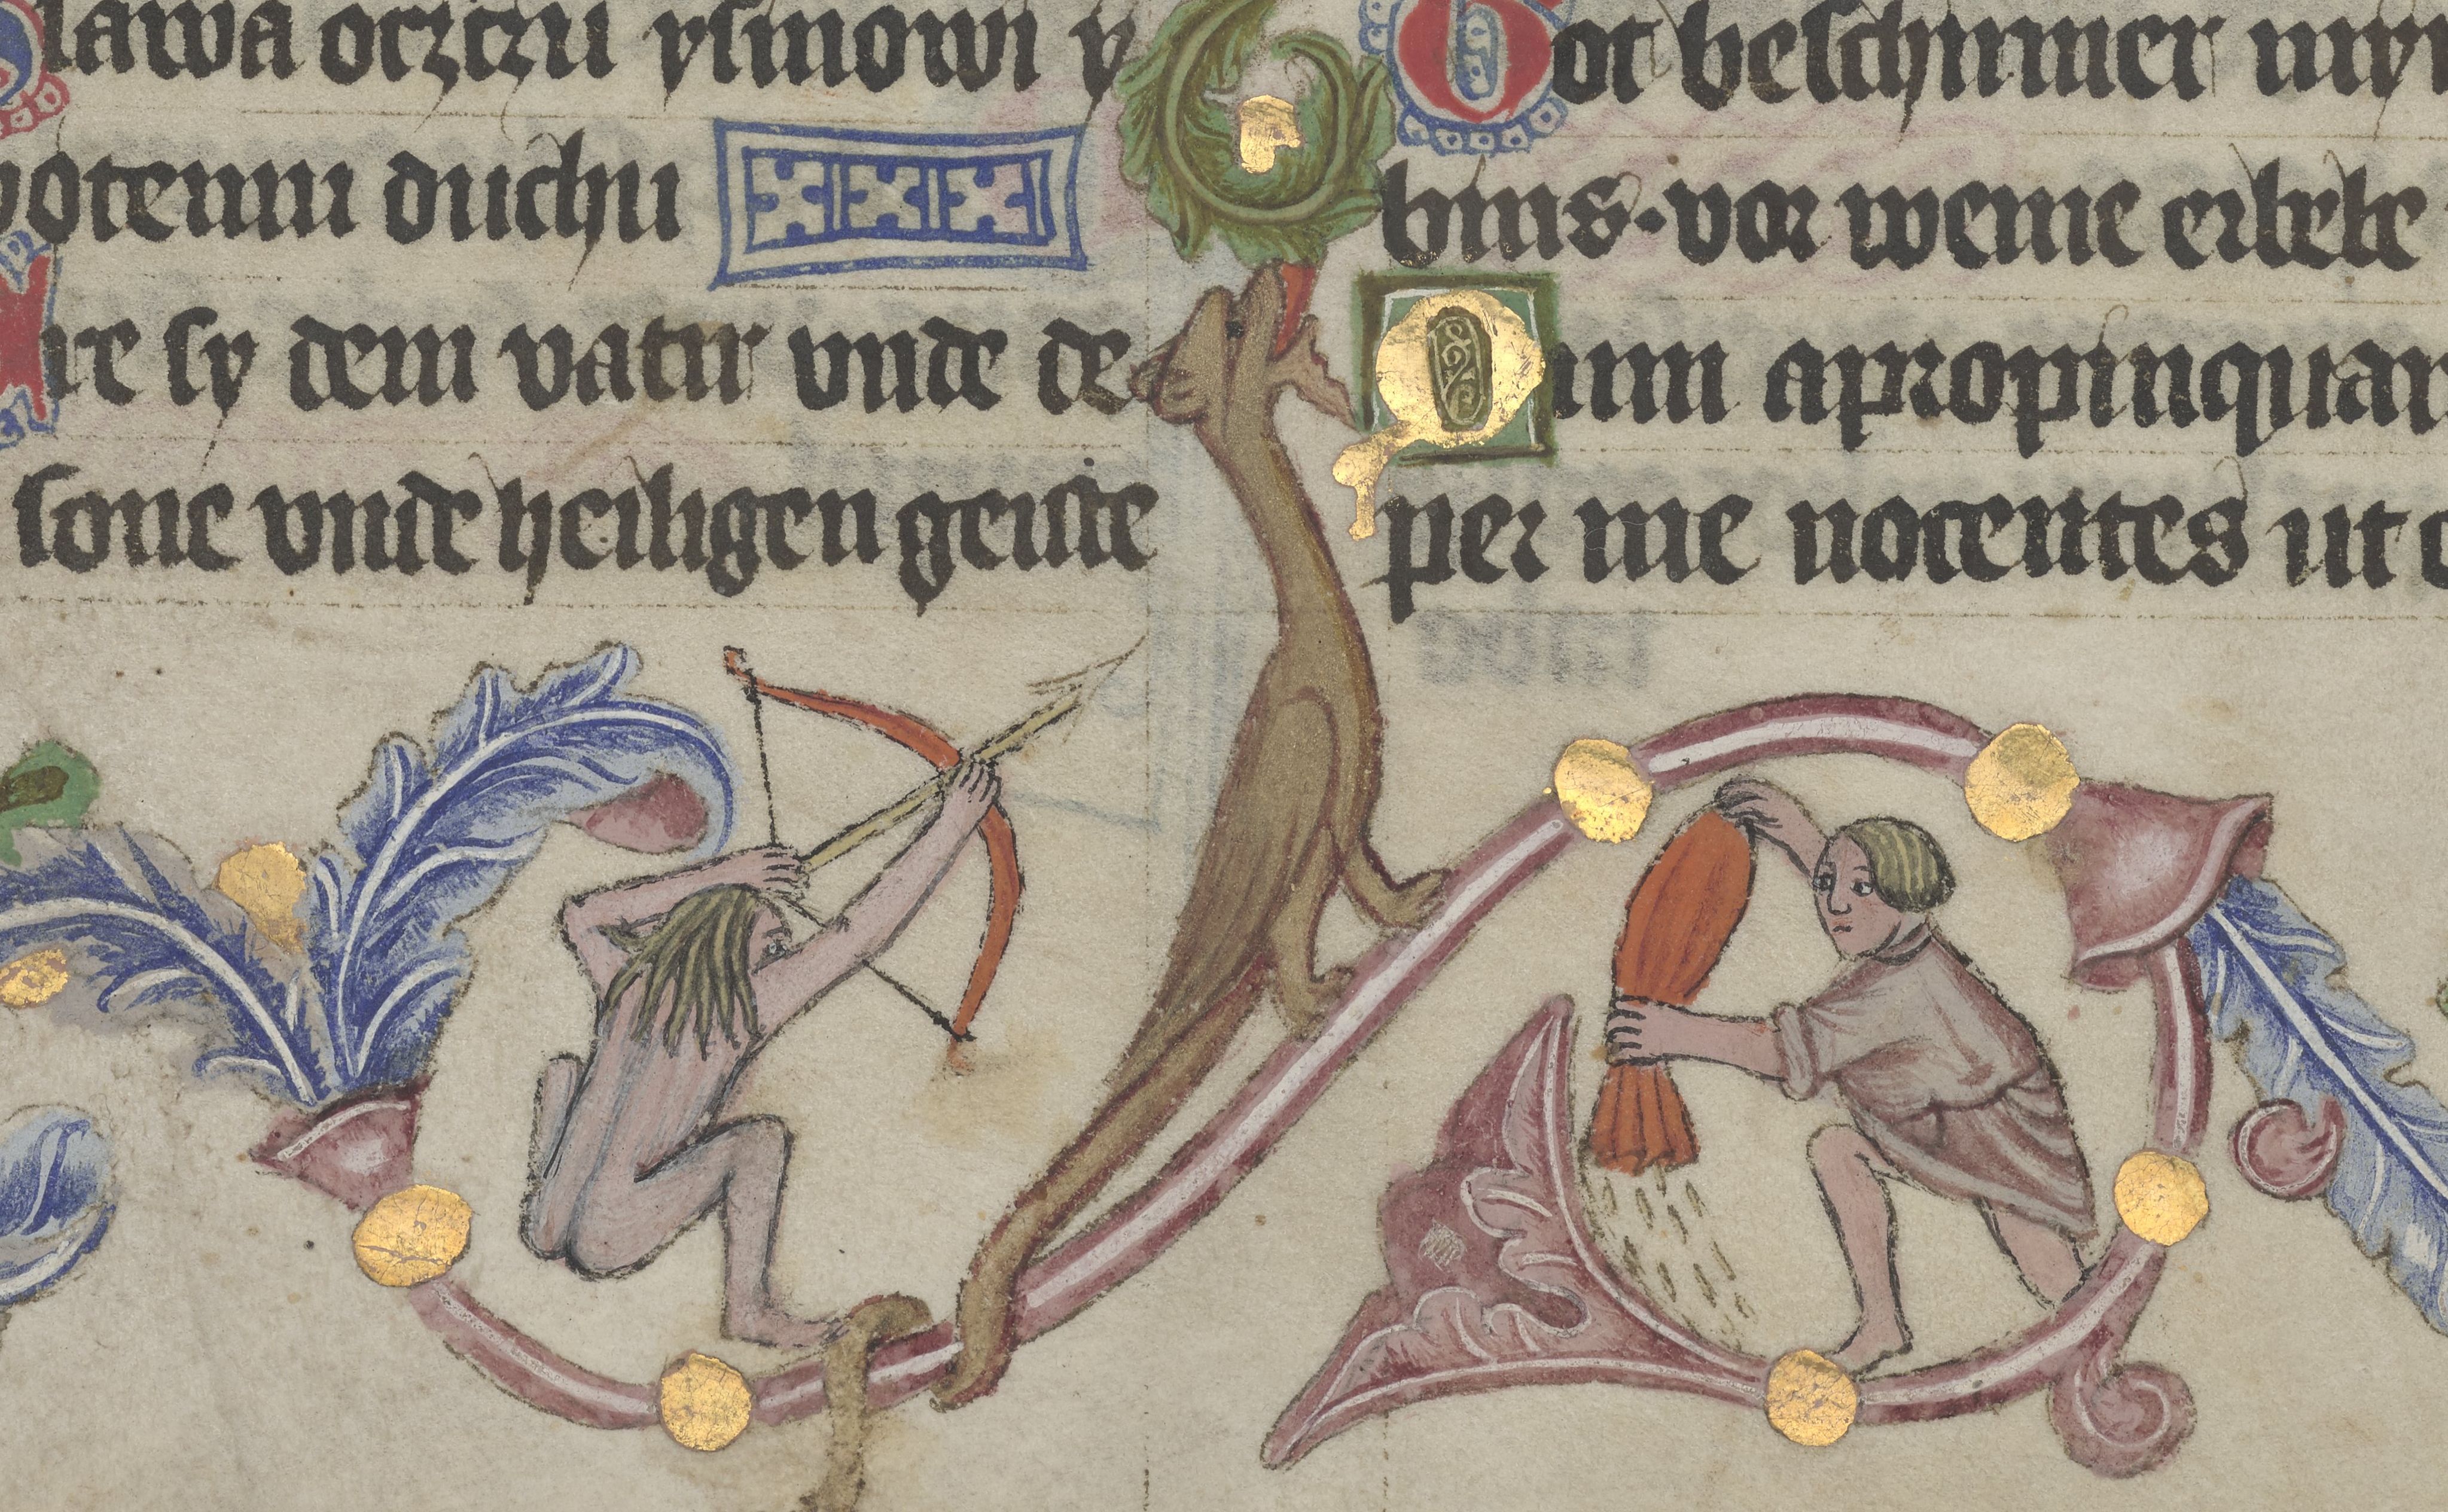 lawa oczczu ysinowi y
votemu duchu
re sy dem vatir vnde de
sone vnde heiligen geiste
Got beschirmer my
bins · vor weme erbebe
Dum apropinquan
per me nocentes ut